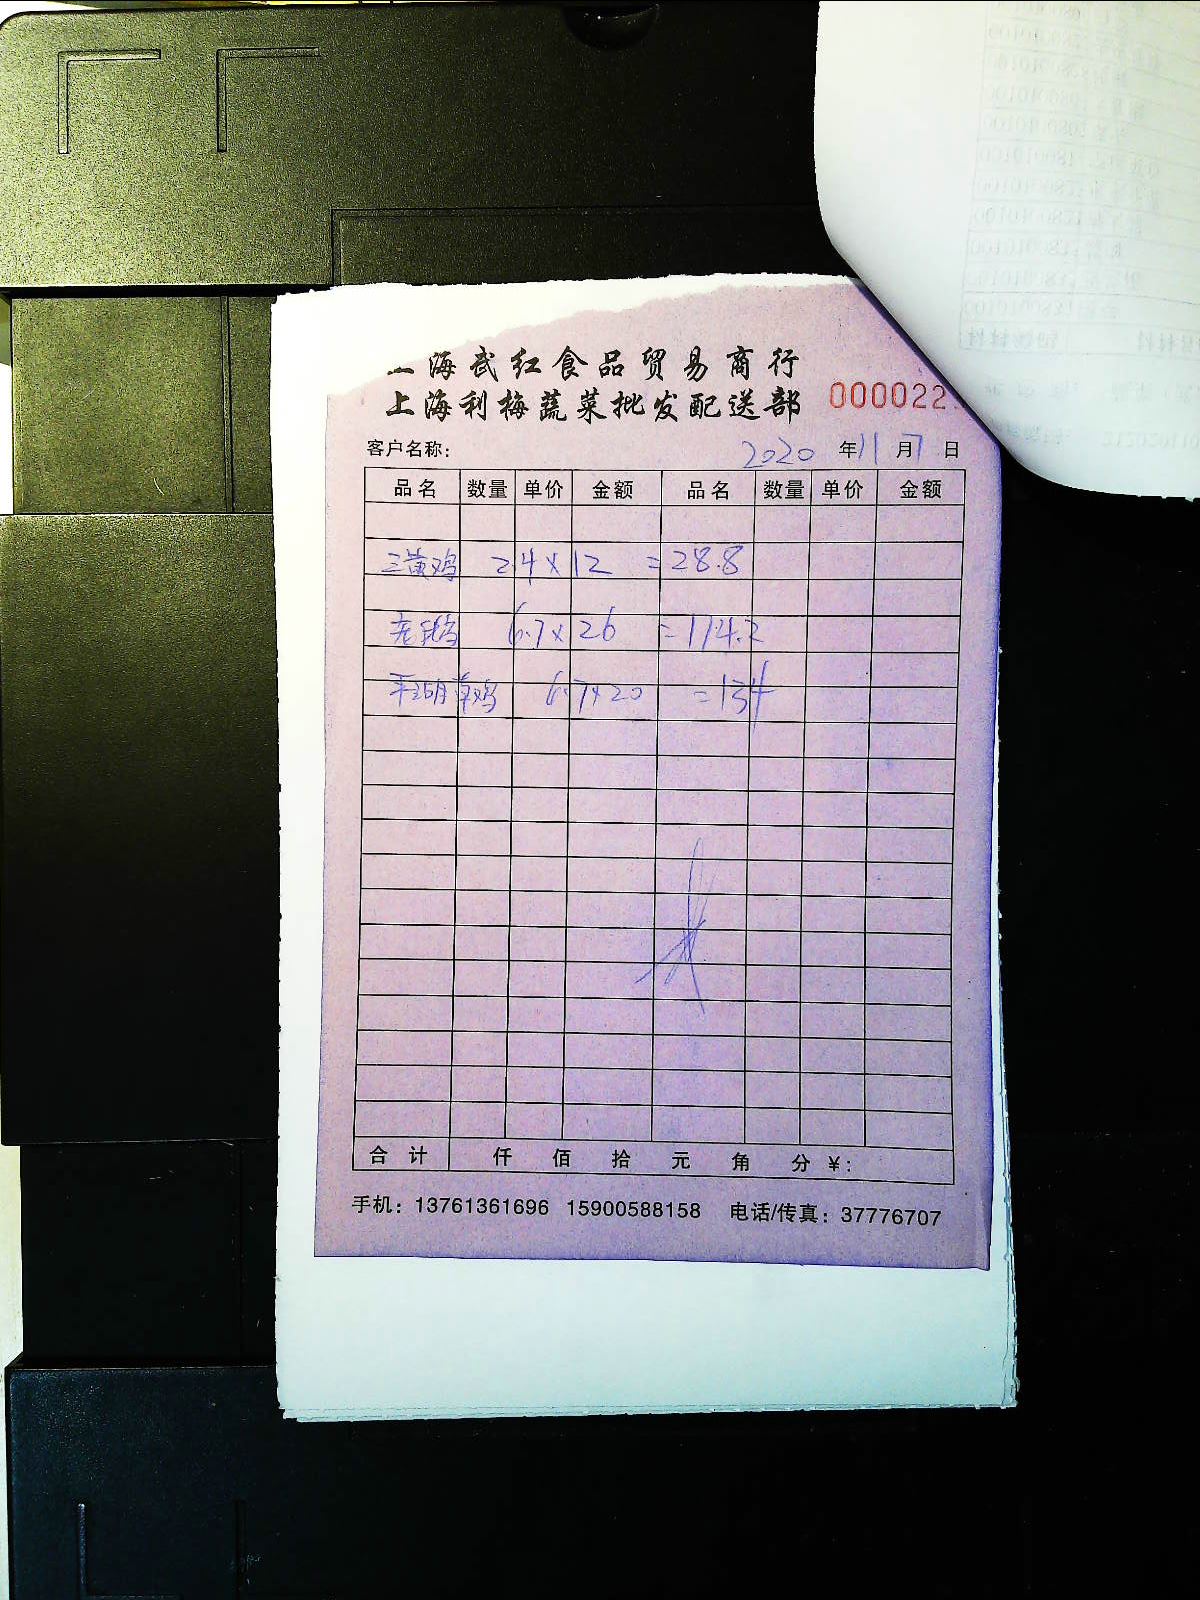 上海武红食品贸易商行
上海利梅蔬菜批发配送部 000022
客户名称: 2020 年 11 月 7 日
品名 数量 单价 金额 品名 数量 单价 金额
三黄鸡 24×12 =28.8
老鹅 6.7×26 =174.2
草鸡 6.7×20 =134
合计 仟 佰 拾 元 角 分 ¥:
手机: 13761361696 15900588158 电话/传真: 37776707